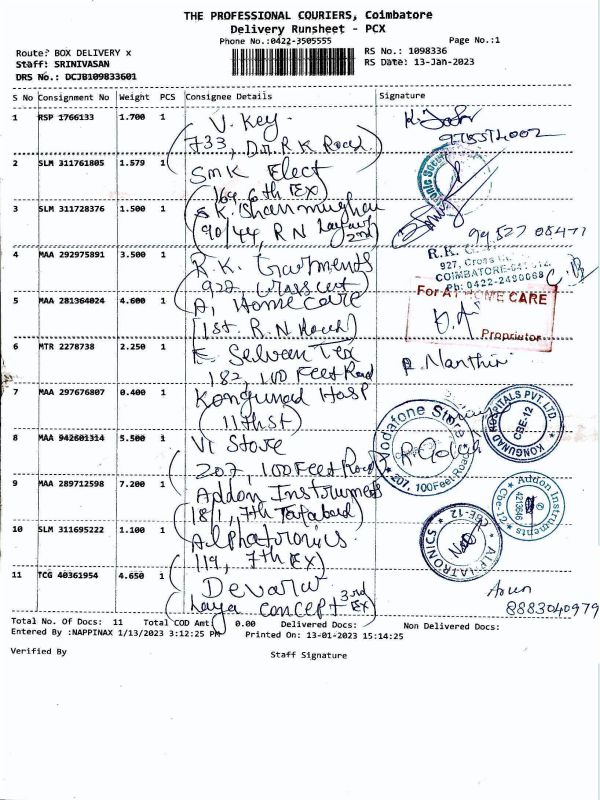 THE PROFESSIONAL COURIERS, Coimbatore
Delivery Runsheet - PCX
Phone No.:0422-3505555 Page No.:1
Route: BOX DELIVERY x RS No.: 1098336
Staff: SRINIVASAN RS Date: 13-Jan-2023
DRS No.: DCJB109833601
S No Consignment No Weight PCS Consignee Details Signature
1 RSP 1766133 1.700 1 V. Key
733, D.R. R K Road.
2 SLM 311761805 1.579 1 SMK Elect
169, 6th EX)
3 SLM 311728376 1.500 1 S K. Shanmughan
(90/44, R N Layout 2nd
99527 08471
4 MAA 292975891 3.500 1 R.K. Garments
922 Crosscut
R.K. G
927, Cross
COIMBATORE-641 012.
Ph: 0422-2490068
5 MAA 281364024 4.600 1 A, Home Care
1st. R.N Road)
For AT HOME CARE
Proprietor
6 MTR 2278738 2.250 1 E. Selvan Tex
182, 100 Feet Road
P. Nanthini
7 MAA 297676807 0.400 1 Kongunad Hosp
(11th st)
KONGUNAD HOSPITALS PVT. LTD.
CBE-12
8 MAA 942601314 5.500 1 VI Store
207, 100 Feet Road
Vodafone Store
207, 100 Feet Road
9 MAA 289712598 7.200 1 Addon Instruments
181, 7th Tatabad
Addon Instruments
Cbe-12
10 SLM 311695222 1.100 1 Alphatronics
119, 7th EX)
ALPHATRONICS
CBE-12
11 TCG 40361954 4.650 1
Laya Concept 3rd EX)
Arun
8883040979
Total No. Of Docs: 11 Total COD Amt: 0.00 Delivered Docs: Non Delivered Docs:
Entered By :NAPPINAX 1/13/2023 3:12:25 PM Printed On: 13-01-2023 15:14:25
Verified By Staff Signature